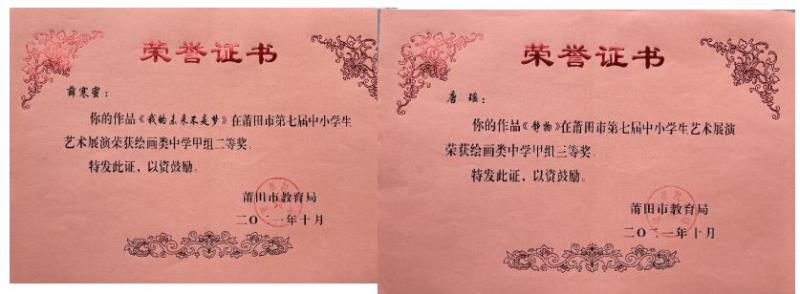 荣誉证书
薛寒蜜：
你的作品《我的未来不是梦》在莆田市第七届中小学生
艺术展演荣获绘画类中学甲组二等奖。
特发此证，以资鼓励。
莆田市教育局
二〇二一年十月
荣誉证书
唐瑶：
你的作品《静物》在莆田市第七届中小学生艺术展演
荣获绘画类中学甲组三等奖。
特发此证，以资鼓励。
莆田市教育局
二〇二一年十月